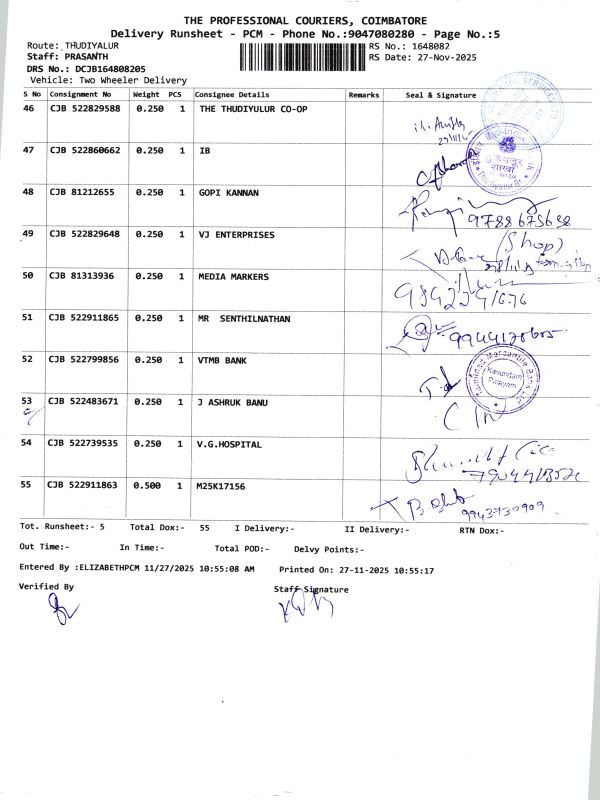 THE PROFESSIONAL COURIERS, COIMBATORE
Delivery Runsheet - PCM - Phone No.:9047080280 - Page No.:5
Route: THUDIYALUR RS No.: 1648082
Staff: PRASANTH RS Date: 27-Nov-2025
DRS No.: DCJB164808205
Vehicle: Two Wheeler Delivery
S No Consignment No Weight PCS Consignee Details Remarks Seal & Signature
46 CJB 522829588 0.250 1 THE THUDIYULUR CO-OP
47 CJB 522860662 0.250 1 IB
48 CJB 81212655 0.250 1 GOPI KANNAN
9788675698
49 CJB 522829648 0.250 1 VJ ENTERPRISES
(Shop)
50 CJB 81313936 0.250 1 MEDIA MARKERS
51 CJB 522911865 0.250 1 MR SENTHILNATHAN
52 CJB 522799856 0.250 1 VTMB BANK
Tamilnad Mercantile Bank Ltd
53 CJB 522483671 0.250 1 J ASHRUK BANU
54 CJB 522739535 0.250 1 V.G.HOSPITAL
55 CJB 522911863 0.500 1 M25K17156
9943730909
Tot. Runsheet:- 5 Total Dox:- 55 I Delivery:- II Delivery:- RTN Dox:-
Out Time:- In Time:- Total POD:- Delvy Points:-
Entered By :ELIZABETHPCM 11/27/2025 10:55:08 AM Printed On: 27-11-2025 10:55:17
Verified By Staff Signature